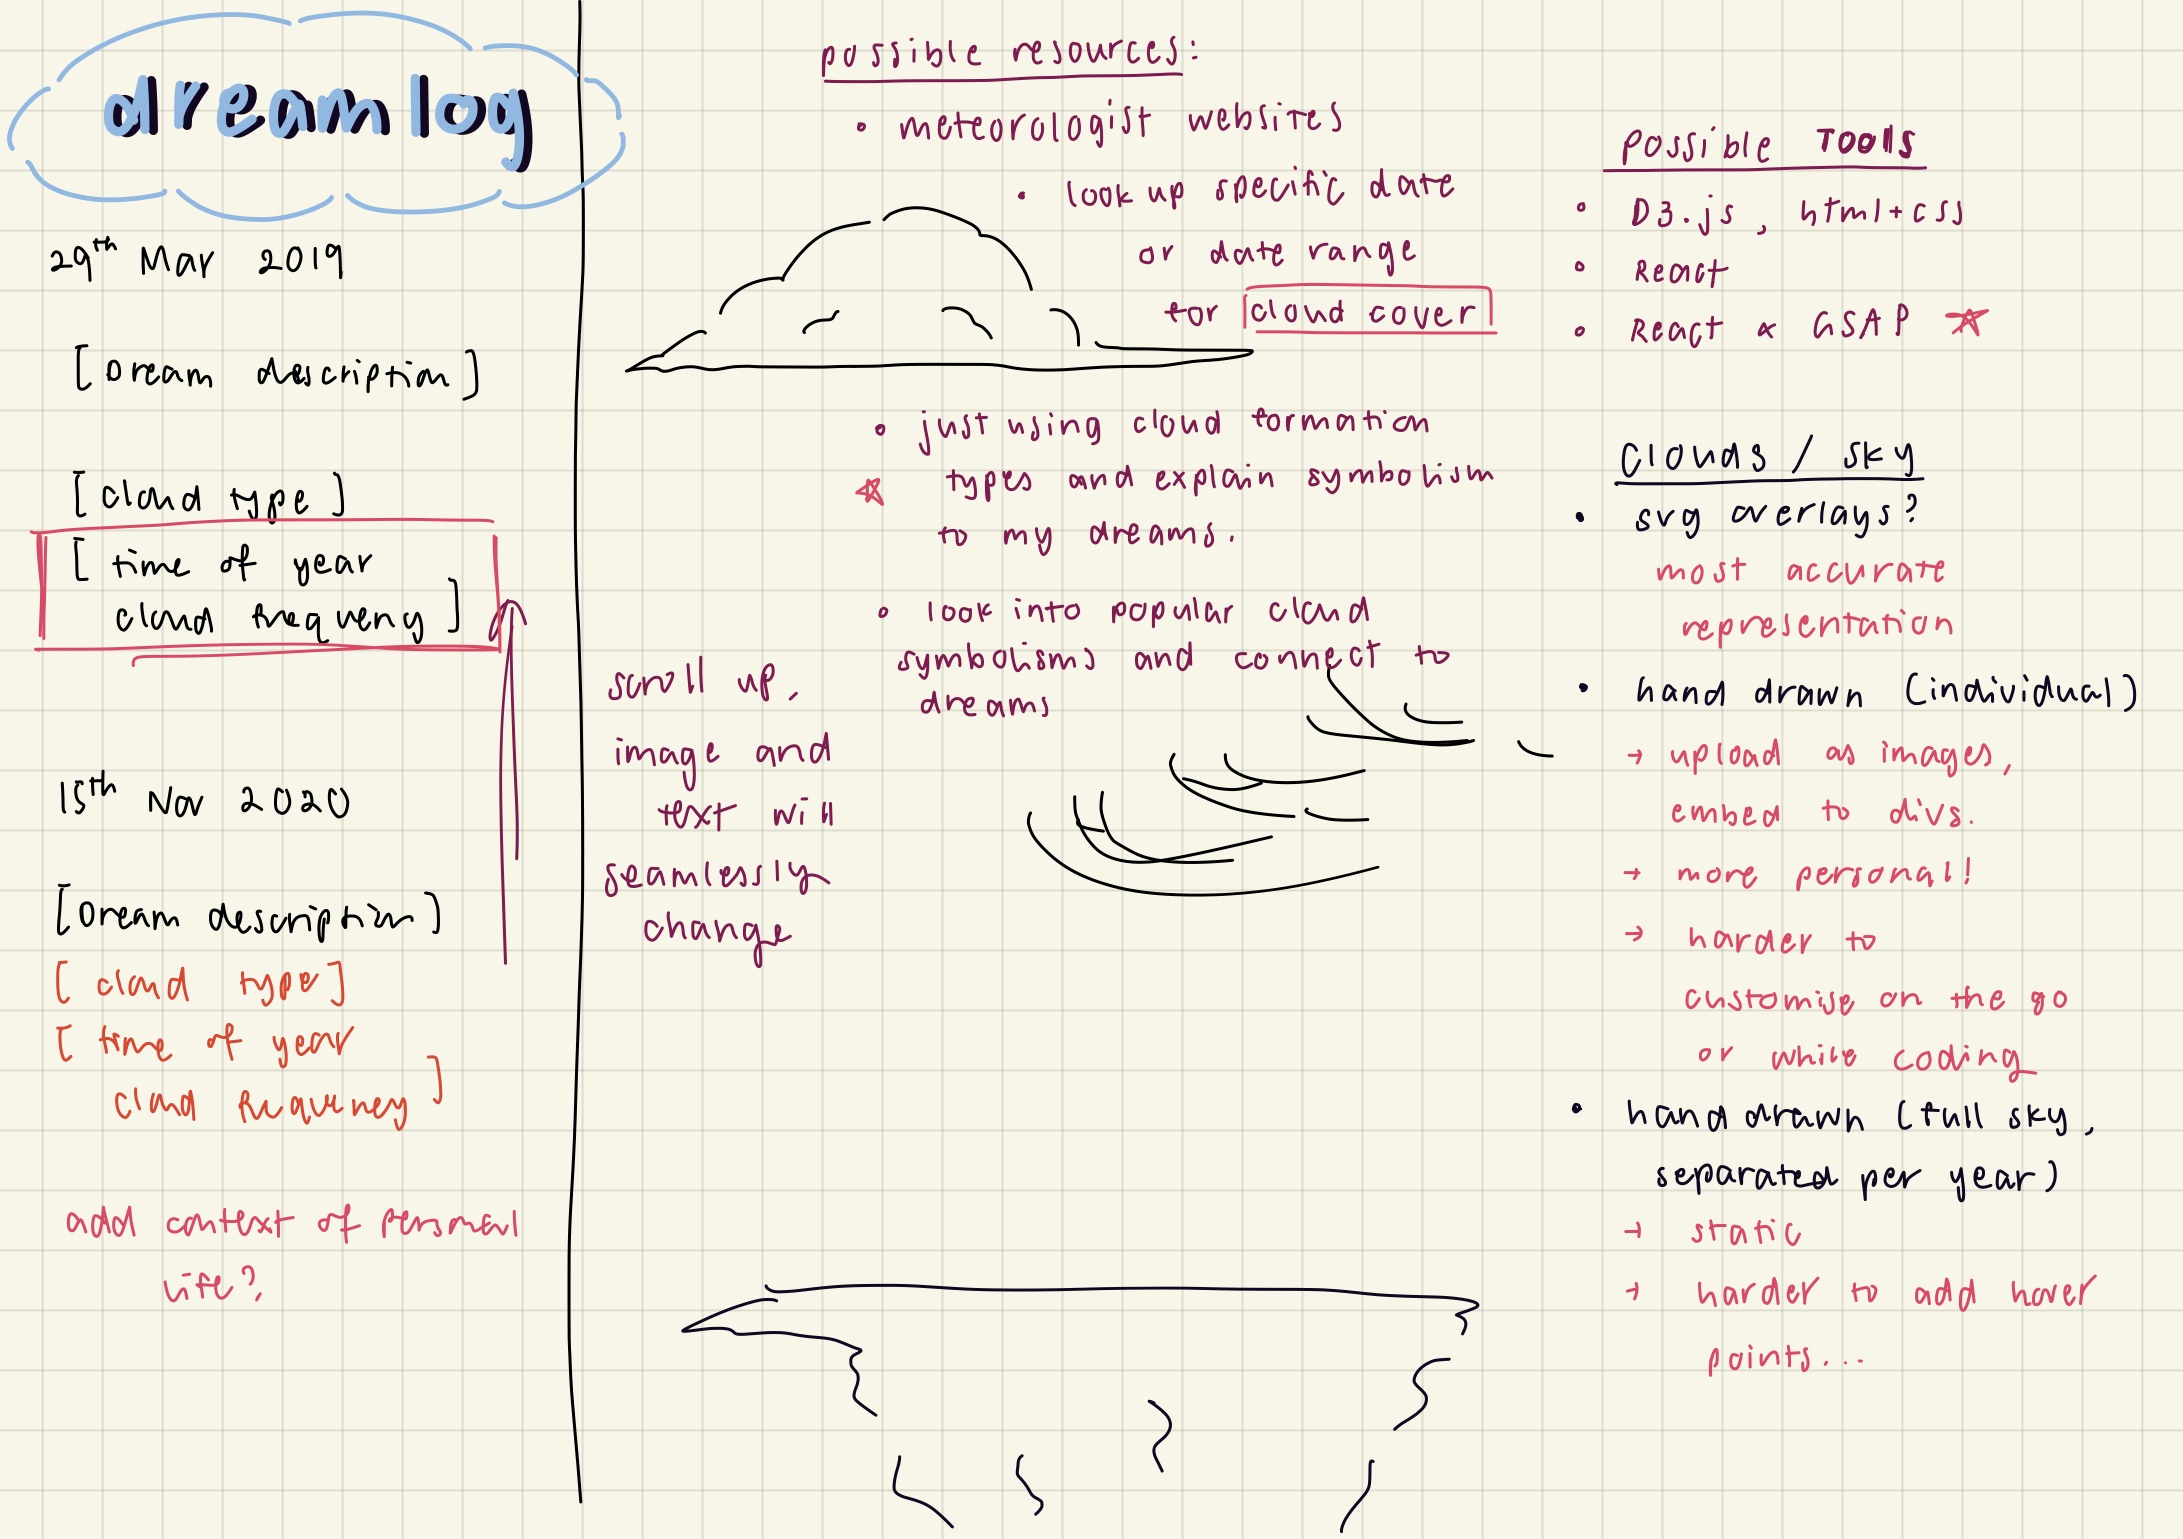 dreamlog
29th Mar 2019
[Dream description]
[cloud type]
[time of year
cloud frequency]
15th Nov 2020
[Dream description]
[cloud type]
[time of year
cloud frequency]
add context of personal
life?
scroll up,
image and
text will
seamlessly
change
possible resources:
• meteorologist websites
• look up specific date
or date range
for cloud cover
• just using cloud formation
types and explain symbolism
to my dreams.
• look into popular cloud
symbolisms and connect to
dreams
Possible Tools
• D3.js, html+css
• React
• React & GSAP
Clouds / sky
• svg overlays?
most accurate
representation
• hand drawn (individual)
→ upload as images,
embed to divs.
→ more personal!
→ harder to
customise on the go
or while coding
• hand drawn (full sky,
separated per year)
→ static
→ harder to add hover
points...